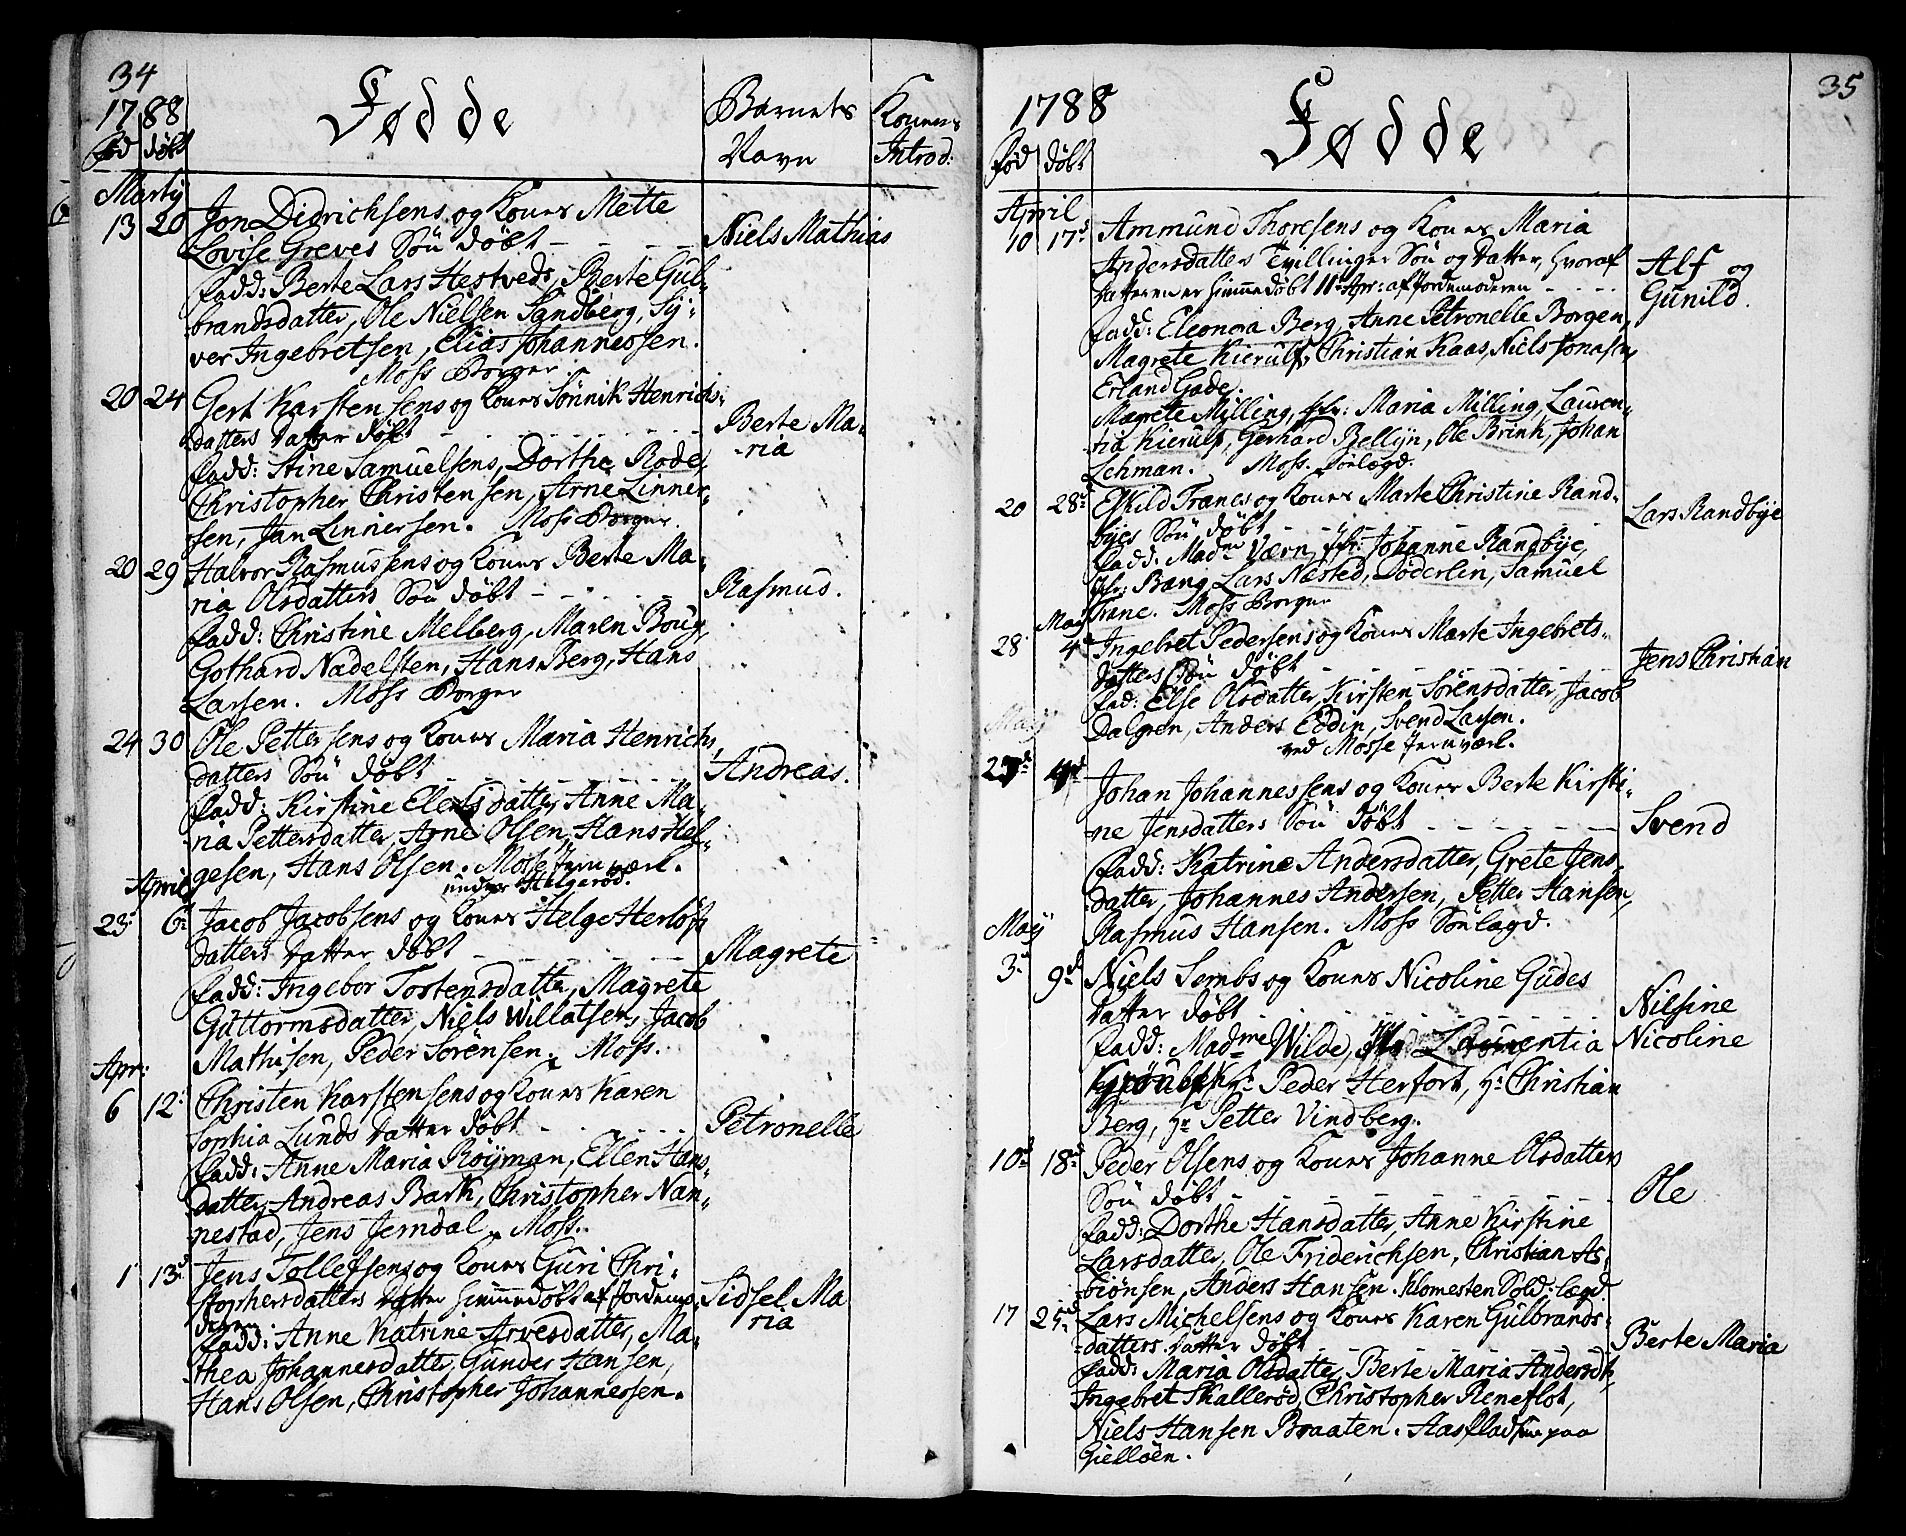 34
1788
Fødde
Barnets
Navn
Konens
Introd:
Fød døbt
Martij
13 20 Jon Didrichsens og Kones Mette
Lovise Greves Søn døbt
Niels Mathias
Fadd: Berte Lars Hestveds, Berte Gul-
brandsdatter, Ole Nielsen Sandberg, Sy-
ver Ingebretsen, Elias Johannessen.
Moss Borger.
20 24 Gert Karstensens og Kones Sønnik Henrichs-
datters datter døbt
Berte Ma-
ria
Fadd: Stine Samuelsens, Dorthe Rode,
Christopher Christensen, Arne Linner-
sen, Jan Linnersen. Moss Borger.
20 29 Halvor Rasmussens og Kones Berte Ma-
ria Olsdatters Søn døbt
Rasmus.
Fadd: Christine Melberg, Maren Boug,
Gothard Nadelsten, Hans Berg, Hans
Larsen. Moss Borger
24 30 Ole Pettersens og Kones Maria Henrichs
datters Søn døbt
Andreas.
Fadd: Kirstine datter, Anne Ma-
ria Pettersdatter, Arne Olsen, Hans Hel-
gesen, Hans Olsen. Mosse Jernværk.
under Helgerød.
April
23 6 Jacob Jacobsens og Kones Helge Herlofs
datters datter døbt
Magrete
Fadd: Ingebor Tostensdatter, Magrete
Guttormsdatter, Niels Willatsen, Jacob
Mathisen, Peder Sørensen. Moss.
Apr:
6 12 Christen Karstensens og Kones Karen
Sophia Lunds datter døbt
Petronelle
Fadd: Anne Maria Röyman, Ellen Hans-
datter, Andreas Bark, Christopher Nan-
nestad, Jens Jerndal. Moss.
1 13d Jens Tollefsens og Kones Guri Chri-
stophersdatters datter hiemmedøbt af Jordemo-
deren
Sidsel Ma
ria
Fadd: Anne Katrine Arvesdatter, Ma-
thea Johannesdatter, Gunder Hansen,
Hans Olsen, Christopher Johannessen.
35
1788
Fødde
Fød døbt
April
10 17d Ammund Thoresens og Kones Maria
Andersdatters Tvillinger Søn og Datter, hvoraf
datteren er hiemmedøbt 11 Apr: af Jordemoderen
Alf og
Gunild.
Fadd: Eleonora Berg, Anne Petronelle Borgen,
Magrete Kierulf, Christian Kaas, Niels Jonasen,
Erland Gade.
Magrete Milling, Jfr: Maria Milling, Lauren-
tia Kierulf, Gerhard Bellijn, Ole Brink, Johan
Lehman. Moss. Sölægd.
20 28 Eskild Tranes og Kones Marte Christine Rand-
byes Søn døbt
Lars Randbye
Fadd: Madme Værn, Jfr: Johanne Randbye,
Jfr: Bang, Lars Næsted, Döderlin, Samuel
Trane. Moss Borger
May
28 4 Ingebret Pedersens og Kones Marte Ingebrets-
datters Søn døbt
Jens Christian
Fad: Else Olsdatter, Kirsten Sørensdatter, Jacob
Dalgren, Anders Eddin, Svend Larsen.
ved Mosse Jernværk.
May
4d Johan Johannessens og Kones Berte Kirsti-
ne Jensdatters Søn døbt
Svend
Fadd: Katrine Andersdatter, Grete Jens
datter, Johannes Andersen, Petter Hansen,
Rasmus Hansen. Moss Sölægd.
May
3 9d Niels Sembs og Kones Nicoline Gudes
datter døbt
Nilsine
Nicoline
Fadd: Madme Wilde, Laurentia
Hr Peder Herfort, Hr Christian
Berg, Hr Petter Vindberg.
10 18 Peder Olsens og Kones Johanne Olsdatters
Søn døbt
Ole
Fadd: Dorthe Hansdatter, Anne Kirstine
Larsdatter, Ole Friderichsen, Christian As-
biönsen, Anders Hansen. Klomesten Sold: lægd
17 25d Lars Michelsens og Kones Karen Gulbrands-
datters datter døbt
Berte Maria
Fadd: Maria Olsdatter, Berte Maria Andersdtr,
Ingebret Skallerød, Christopher Reneflot,
Niels Hansen Braaten. Aas paa
Gielløen.